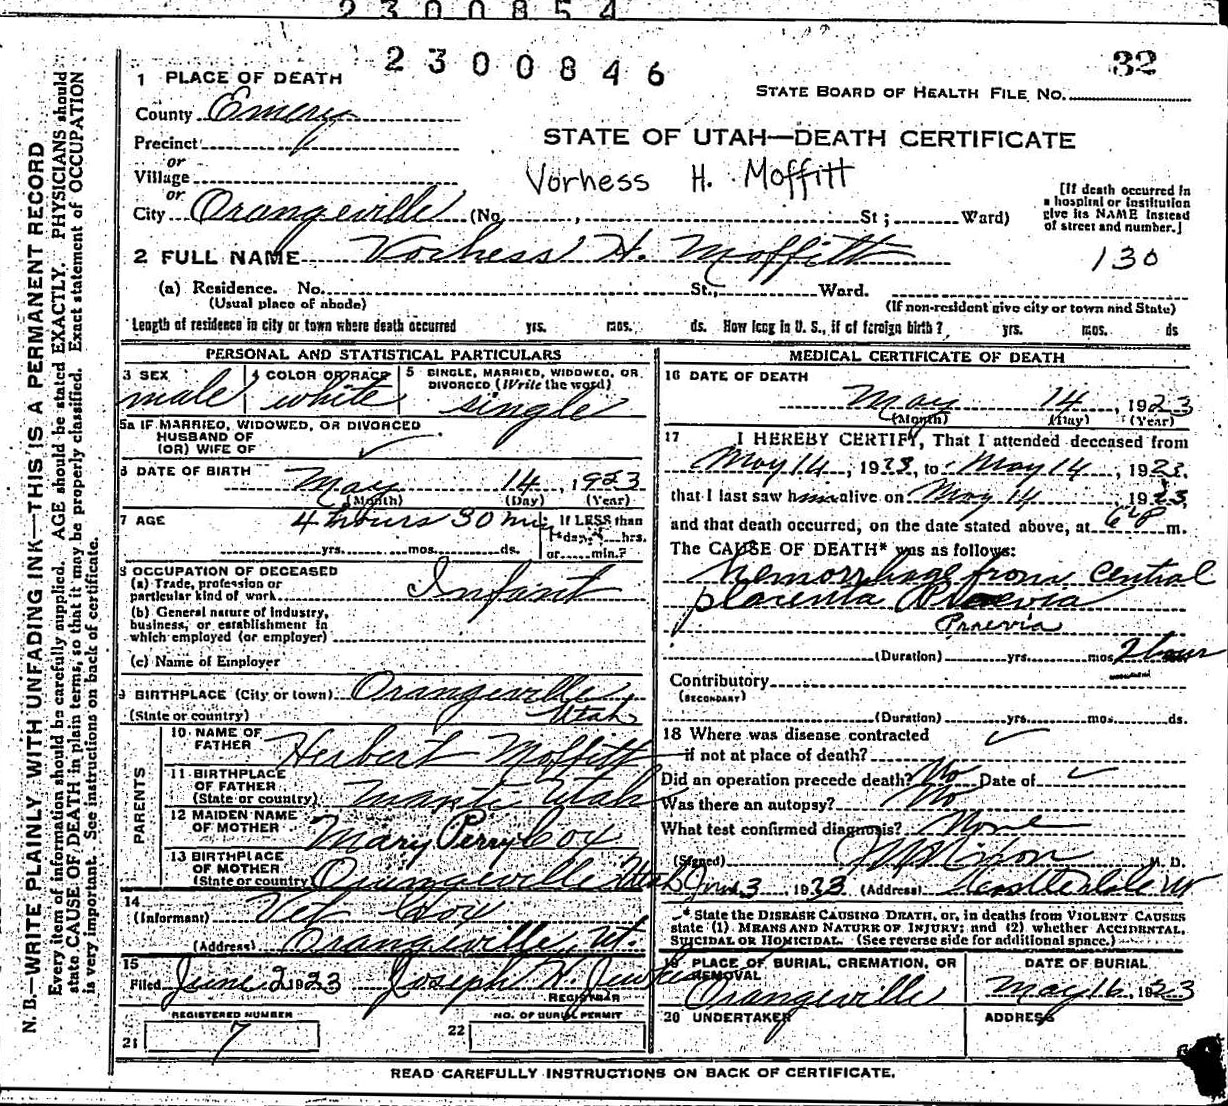 2300854
2300846
32
1 PLACE OF DEATH
STATE BOARD OF HEALTH FILE NO.
County Emery
STATE OF UTAH—DEATH CERTIFICATE
Precinct
or
Village
Vorhess H. Moffitt
or
City Orangeville (No. , St; Ward)
[If death occurred in
a hospital or institution
give its NAME instead
of street and number.]
2 FULL NAME Vorhess H. Moffitt
130
(a) Residence. No. St., Ward.
(Usual place of abode)
(If non-resident give city or town and State)
Length of residence in city or town where death occurred yrs. mos. ds. How long in U. S., if of foreign birth? yrs. mos. ds
PERSONAL AND STATISTICAL PARTICULARS
3 SEX
male
4 COLOR OR RACE
white
5 SINGLE, MARRIED, WIDOWED, OR
DIVORCED (Write the word)
single
5a IF MARRIED, WIDOWED, OR DIVORCED
HUSBAND OF
(OR) WIFE OF
6 DATE OF BIRTH
May 14, 1923
(Month) (Day) (Year)
7 AGE 4 hours 30 min
yrs. mos. ds.
If LESS than
1 day, hrs.
or min.?
8 OCCUPATION OF DECEASED
(a) Trade, profession or
particular kind of work Infant
(b) General nature of Industry,
business, or establishment in
which employed (or employer)
(c) Name of Employer
9 BIRTHPLACE (City or town) Orangeville,
(State or country) Utah
PARENTS
10 NAME OF
FATHER Herbert Moffitt
11 BIRTHPLACE
OF FATHER
(State or country) Manti Utah
12 MAIDEN NAME
OF MOTHER Mary Perry Cox
13 BIRTHPLACE
OF MOTHER
(State or country) Orangeville Utah
14
(Informant) Cox
(Address) Orangeville, Ut.
15
Filed June 2 1923 Joseph H. Jewkes
REGISTRAR
REGISTERED NUMBER
21 7
NO. OF BURIAL PERMIT
22
MEDICAL CERTIFICATE OF DEATH
16 DATE OF DEATH
May 14, 1923
(Month) (Day) (Year)
17 I HEREBY CERTIFY, That I attended deceased from
May 14, 1923, to May 14, 1923,
that I last saw him alive on May 14 1923,
and that death occurred, on the date stated above, at m.
The CAUSE OF DEATH* was as follows:
hemorrhage from central
placenta Praevia
Praevia
(Duration) yrs. mos. 2 hour
Contributory
(SECONDARY)
(Duration) yrs. mos. ds.
18 Where was disease contracted
if not at place of death?
Did an operation precede death? No Date of
Was there an autopsy? No
What test confirmed diagnosis? None
(Signed) Nixon M. D.
June 3, 1923 (Address) Ut
* State the DISEASE CAUSING DEATH, or, in deaths from VIOLENT CAUSES
state (1) MEANS AND NATURE OF INJURY; and (2) whether ACCIDENTAL,
SUICIDAL OR HOMICIDAL. (See reverse side for additional space.)
19 PLACE OF BURIAL, CREMATION, OR
REMOVAL
Orangeville
DATE OF BURIAL
May 16, 1923
20 UNDERTAKER
ADDRESS
READ CAREFULLY INSTRUCTIONS ON BACK OF CERTIFICATE.
N. B.—WRITE PLAINLY WITH UNFADING INK—THIS IS A PERMANENT RECORD
Every item of information should be carefully supplied. AGE should be stated EXACTLY. PHYSICIANS should
state CAUSE OF DEATH in plain terms, so that it may be properly classified. Exact statement of OCCUPATION
is very important. See instructions on back of certificate.